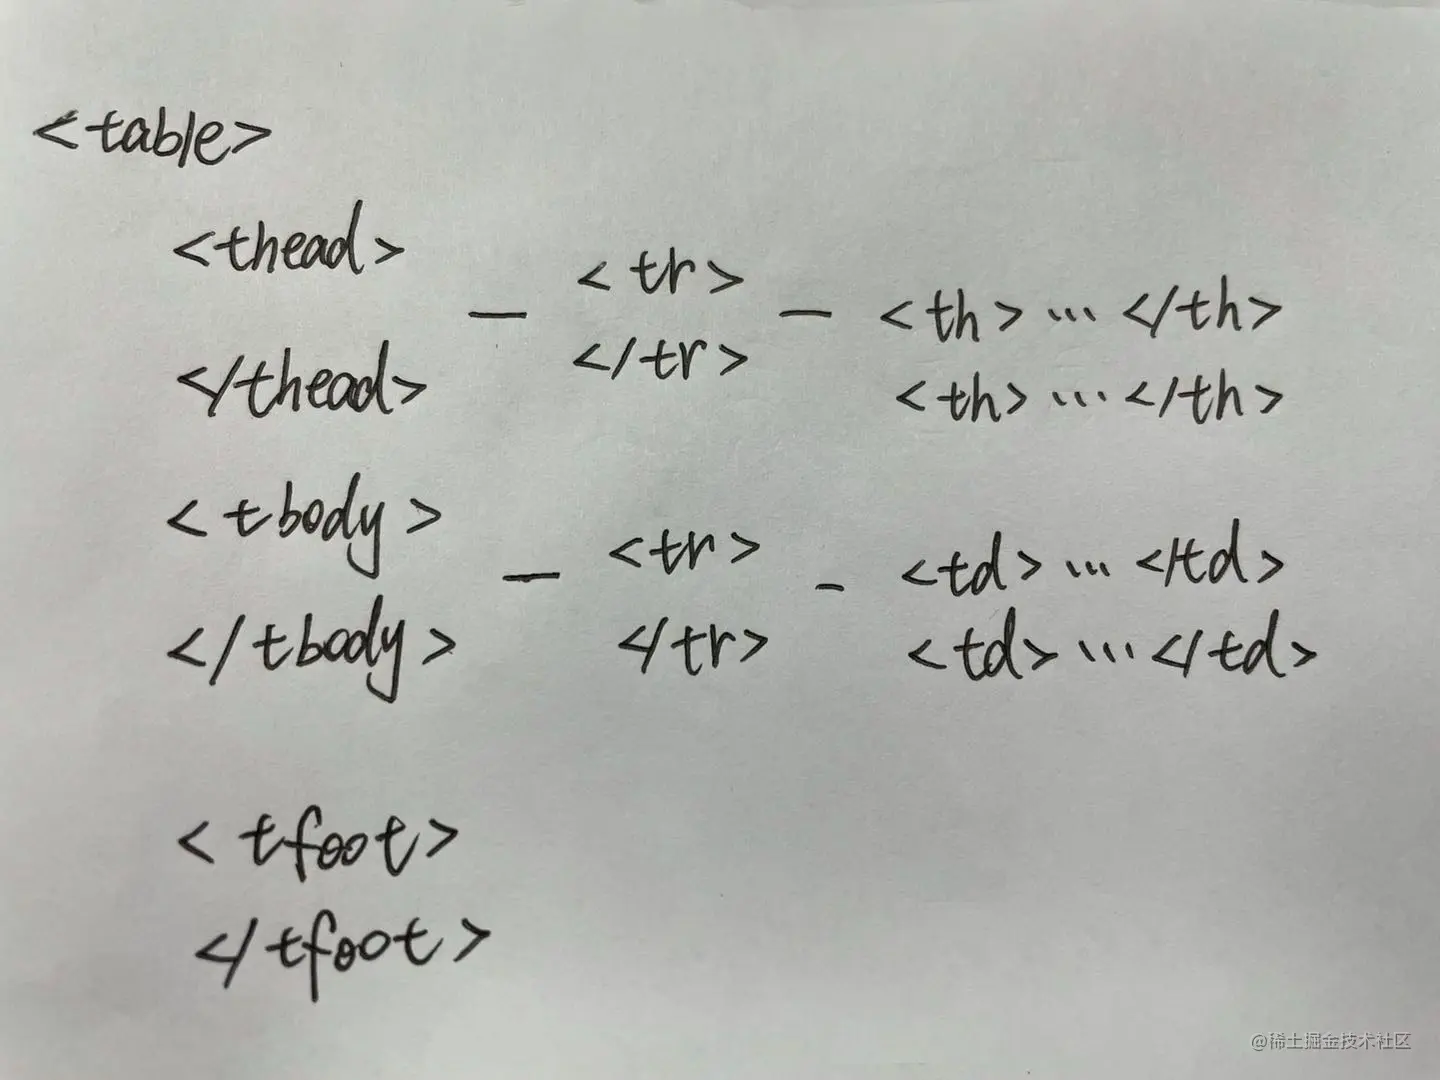 <table>
<thead>
</thead>
— <tr>
</tr>
— <th> ... </th>
<th> ... </th>
<tbody>
</tbody>
— <tr>
</tr>
- <td> ... </td>
<td> ... </td>
<tfoot>
</tfoot>
@稀土掘金技术社区